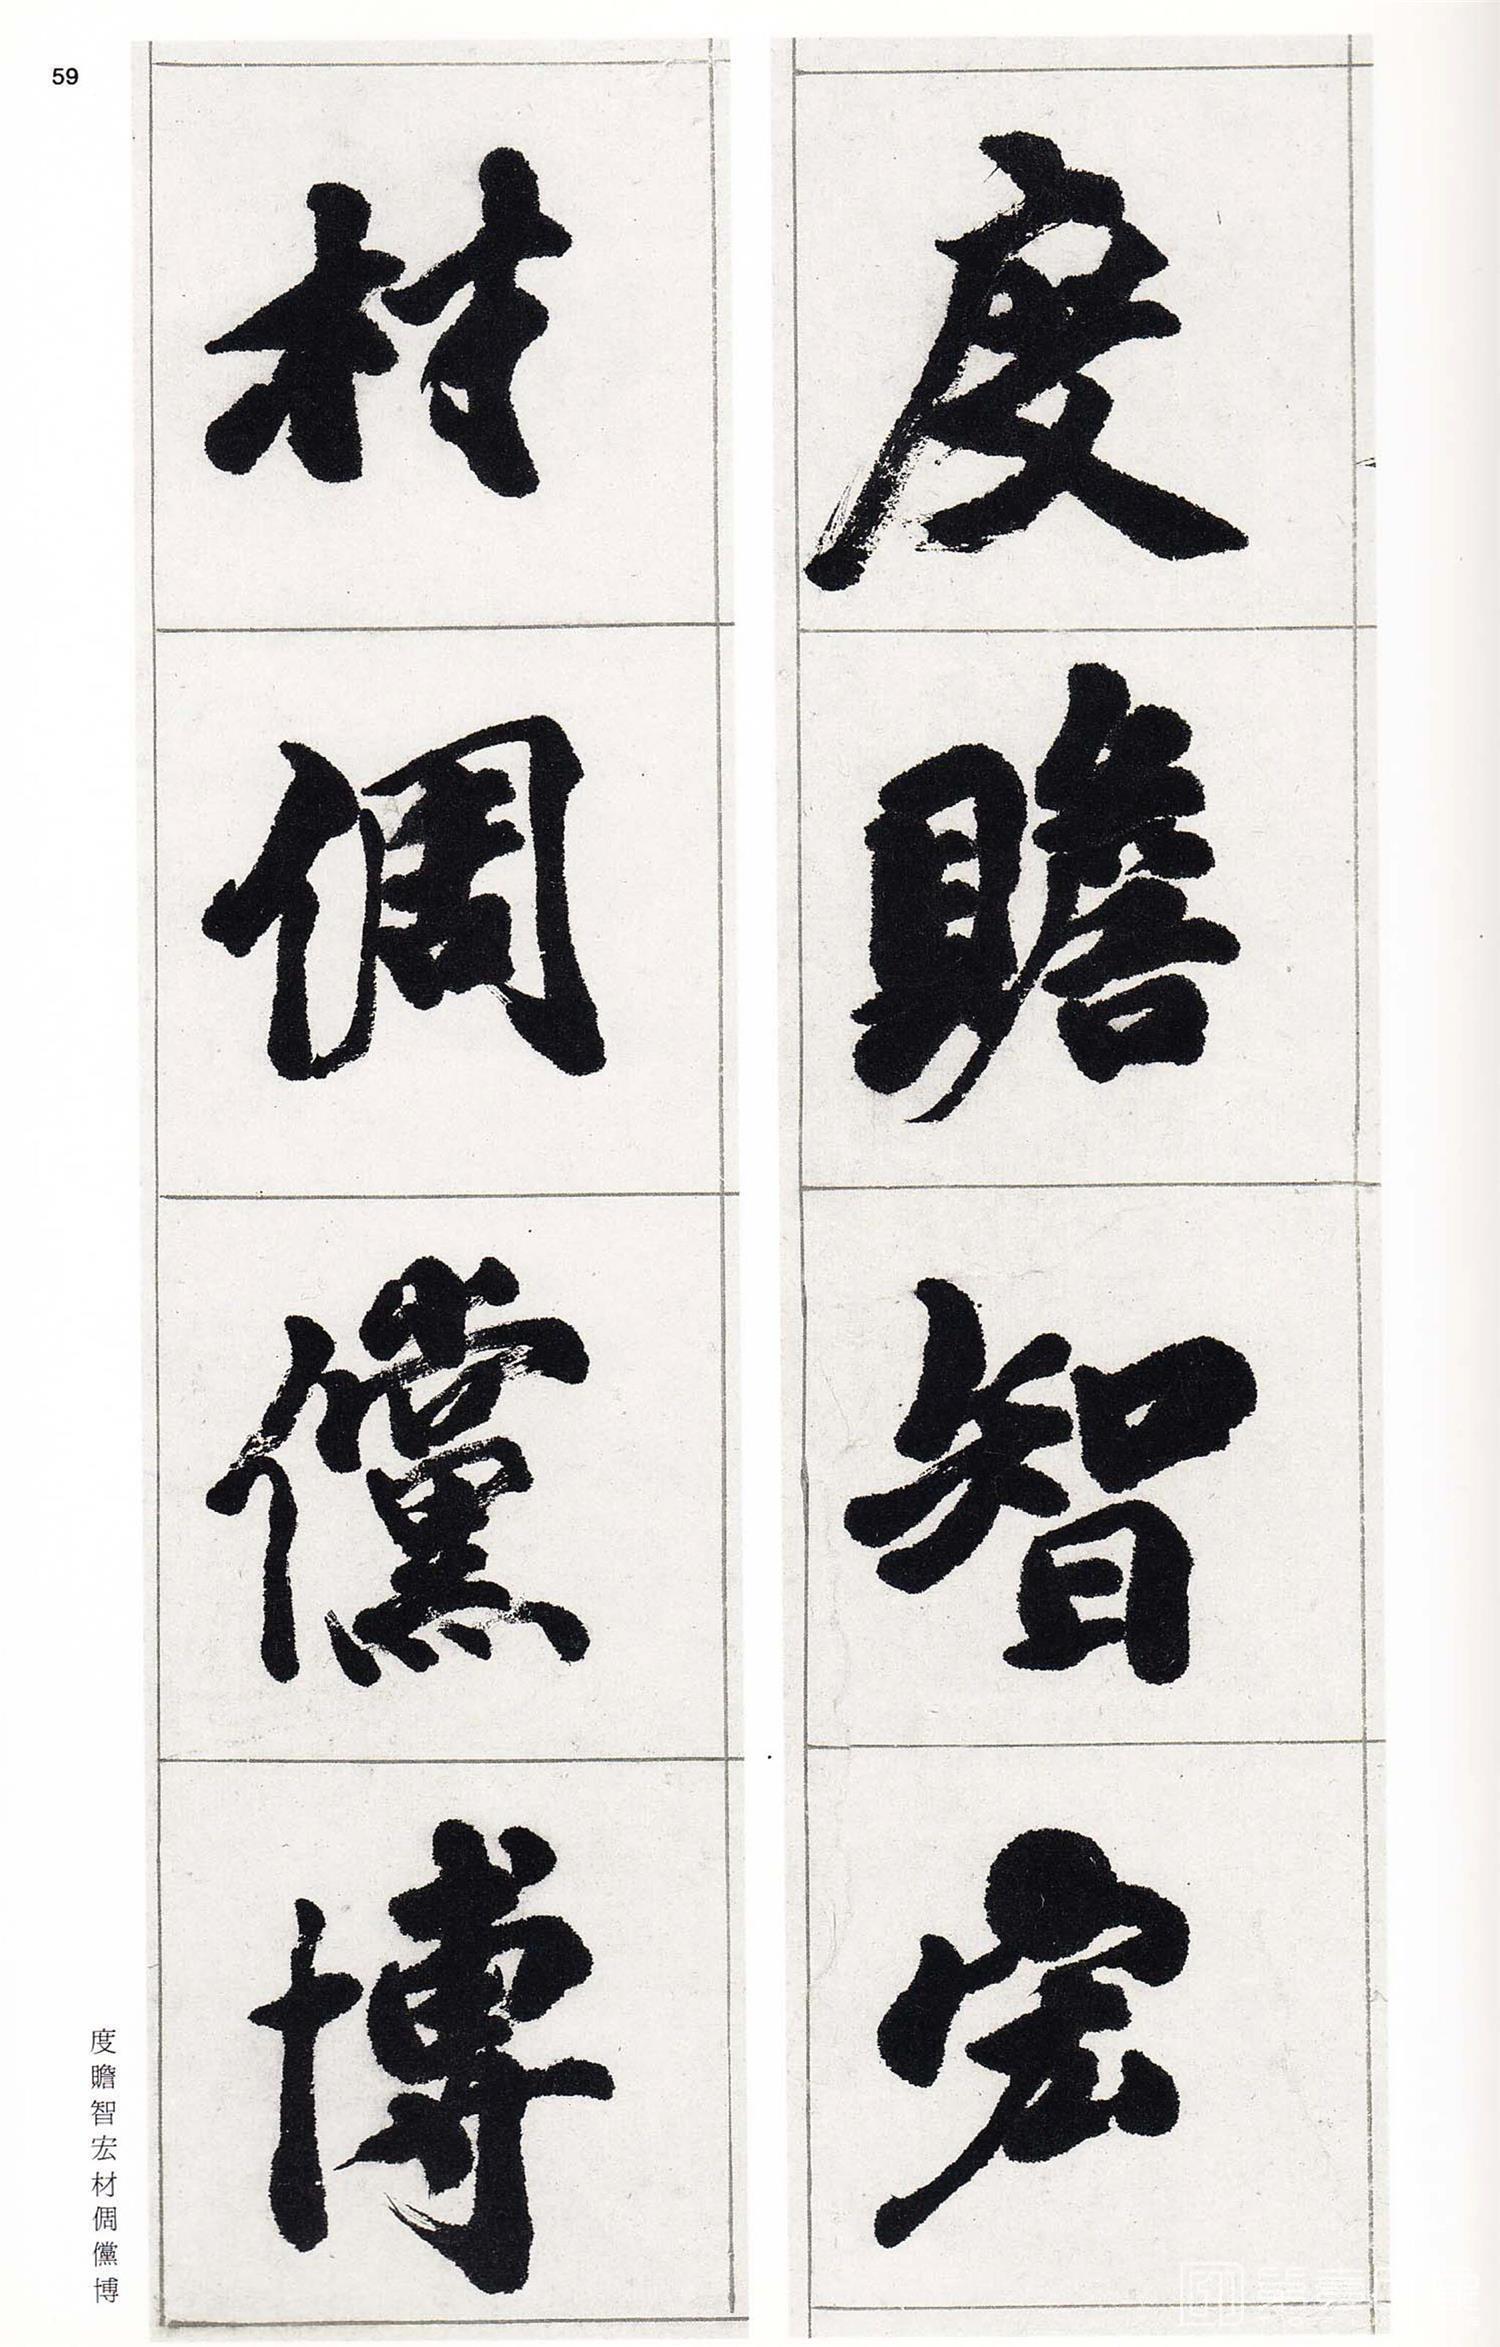 59
度贍智宏
材倜儻博
度贍智宏材倜儻博